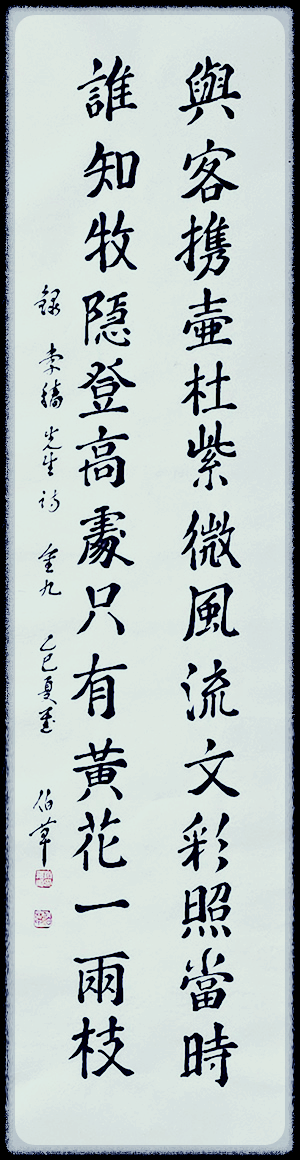 與客携壺杜紫微風流文彩照當時
誰知牧隱登高處只有黃花一兩枝
錄 李穡先生詩 重九 乙巳夏至 伯草